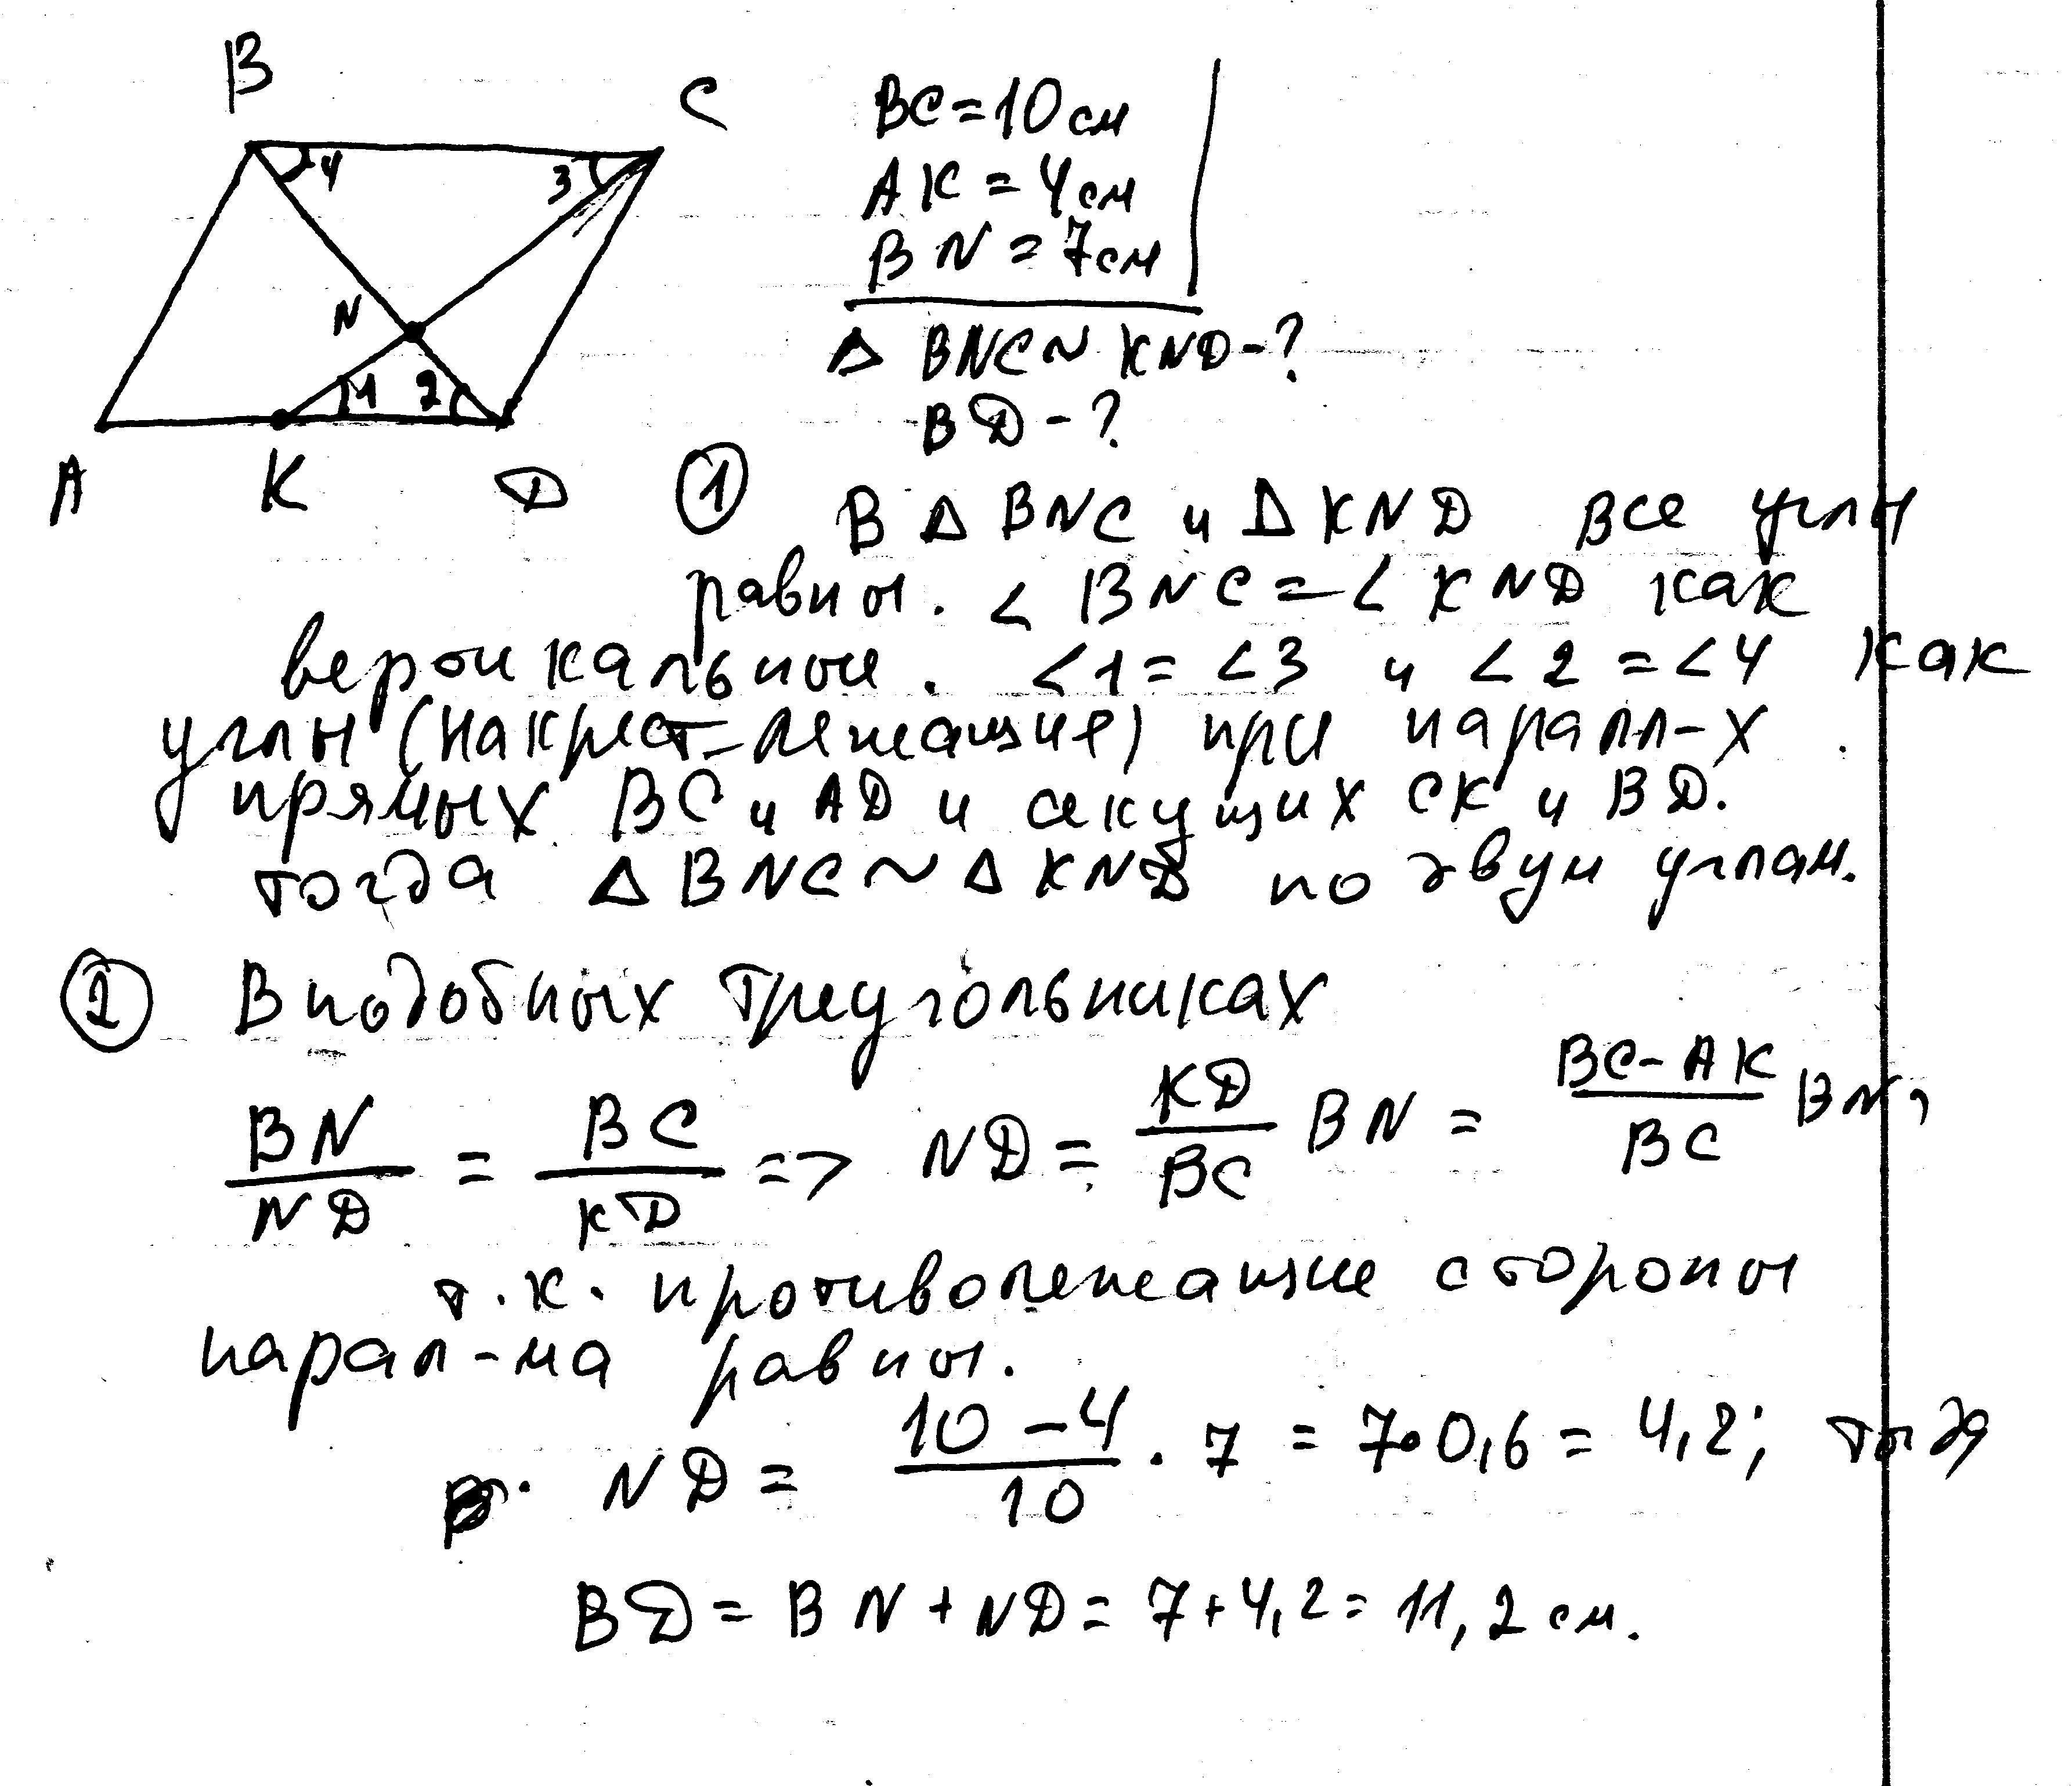 B
C
4
3
N
1
2
A
K
D
BC=10см
AK=4см
BN=7см
Δ BNC~KND-?
BD-?
① В Δ BNC и Δ KND все углы
равны. <BNC=<KND как
вертикальные. <1=<3 и <2=<4 как
углы (накрест-лежащие) при паралл-х
прямых BC и AD и секущих CK и BD.
тогда Δ BNC ~ Δ KND по двум углам.
② В подобных треугольниках
BN/ND = BC/KD => ND = KD/BC BN = BC-AK/BC BN,
т.к. противолежащие стороны
парал-ма равны.
ND = 10-4/10 · 7 = 7•0,6 = 4,2;
BD = BN + ND = 7+4,2 = 11,2 см.